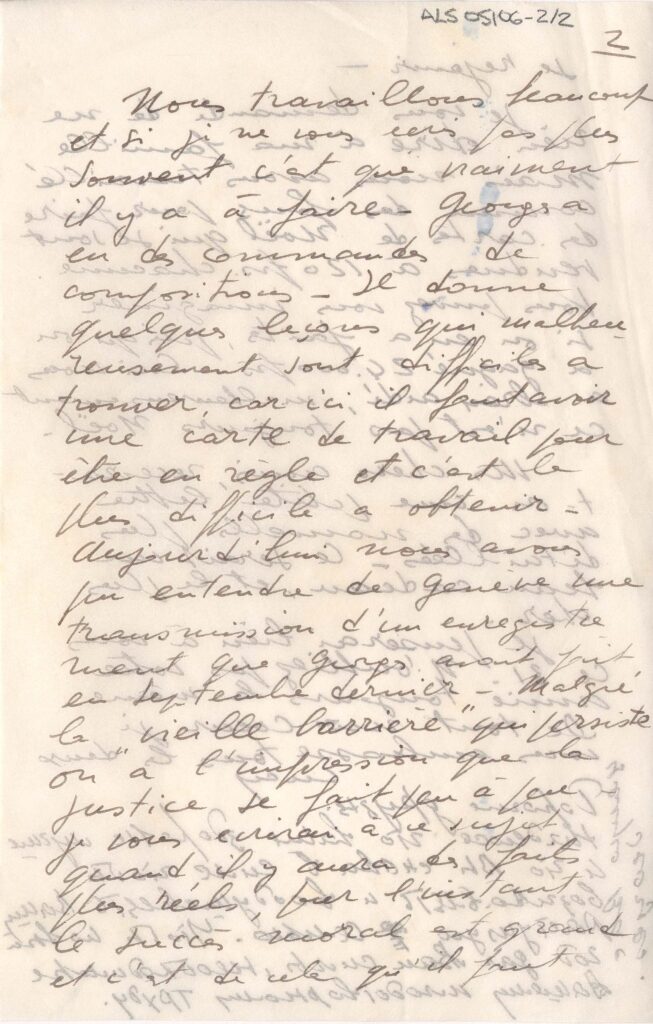 ALS 05/06-2/2
2
Nous travaillons beaucoup
et si je ne vous écris pas plus
souvent c'est que vraiment
il y a à faire - Georges a
eu des commandes de
compositions - Il donne
quelques leçons qui malheu-
reusement sont difficiles a
trouver, car ici, il faut avoir
une carte de travail pour
être en règle et c'est le
plus difficile a obtenir -
Aujourd'hui nous avons
pu entendre de Genève une
transmission d'un enregistre
ment que Georges avait fait
en septembre dernier - Malgré
la "vieille barrière" qui persiste
on a l'impression que la
justice se fait peu à peu
je vous écrirai à ce sujet
quand il y aura des faits
plus réels, pour l'instant
le succès moral est grand
et c'est de cela qu'il faut